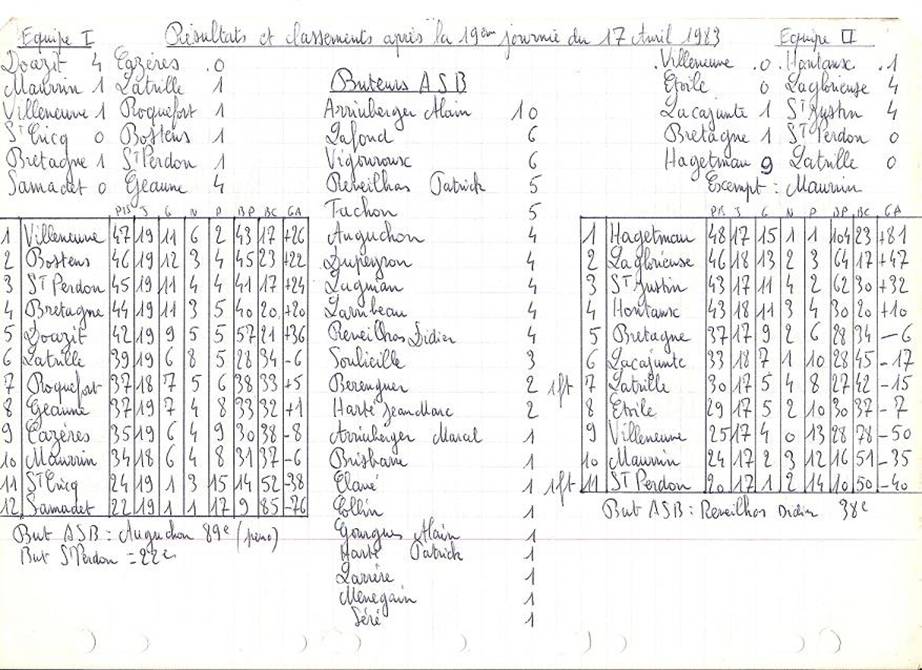 Equipe I Résultats et classements après la 19ème journée du 17 Avril 1983 Equipe II
Doazit 4 Cazères 0
Maurrin 1 Latrille 1
Villeneuve 1 Roquefort 1
St Cricq 0 Bostens 1
Bretagne 1 St Perdon 1
Samadet 0 Geaune 4
Pts J G N P BP BC GA
1 Villeneuve 47 19 11 6 2 43 17 +26
2 Bostens 46 19 12 3 4 45 23 +22
3 St Perdon 45 19 11 4 4 41 17 +24
4 Bretagne 44 19 11 3 5 40 20 +20
5 Doazit 42 19 9 5 5 57 21 +36
6 Latrille 39 19 6 8 5 28 34 -6
7 Roquefort 37 18 7 5 6 38 33 +5
8 Geaune 37 19 7 4 8 33 32 +1
9 Cazères 35 19 6 4 9 30 38 -8
10 Maurrin 34 18 6 4 8 31 37 -6
11 St Cricq 24 19 1 3 15 14 52 -38
12 Samadet 22 19 1 1 17 9 85 -76
But ASB : Auguchon 89e (peno)
But St Perdon = 22e
Buteurs ASB
Arrinberger Alain 10
Lafond 6
Vigouroux 6
Reveilhos Patrick 5
Tachon 5
Auguchon 4
Dupeyron 4
Lagnian 4
Larribeau 4
Reveilhos Didier 4
Soulieille 3
Berenguer 2
Harté Jean Marc 2
Arrinberger Marcel 1
Brisbare 1
Clavé 1
Ellin 1
Gourgues Alain 1
Harté Patrick 1
Larrère 1
Menegain 1
Séré 1
Villeneuve 0 Hontanx 1
Etoile 0 Laglorieuse 4
Lacajunte 1 St Justin 4
Bretagne 1 St Perdon 0
Hagetmau 9 Latrille 0
Exempt : Maurrin
Pts J G N P BP BC GA
1 Hagetmau 48 17 15 1 1 104 23 +81
2 Laglorieuse 46 18 13 2 3 64 17 +47
3 St Justin 43 17 11 4 2 62 30 +32
4 Hontanx 43 18 11 3 4 30 20 +10
5 Bretagne 37 17 9 2 6 28 34 -6
6 Lacajunte 33 18 7 1 10 28 45 -17
1 fft 7 Latrille 30 17 5 4 8 27 42 -15
8 Etoile 29 17 5 2 10 30 37 -7
9 Villeneuve 25 17 4 0 13 28 78 -50
10 Maurrin 24 17 2 3 12 16 51 -35
1 fft 11 St Perdon 20 17 1 2 14 10 50 -40
But ASB : Reveilhos Didier 38e